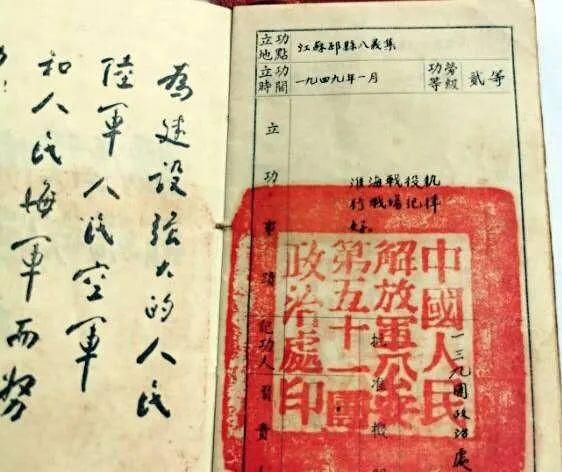 立功地點 江蘇邳縣八義集
立功時間 一九四九年一月 功勞等級 貳等
立功事項
淮海戰役執
行戰場紀律
好。
記功人
批准機
一三九團政治處
中國人民
解放軍公安
第五十一團
政治處印
為建設強大的人民
陸軍人民空軍
和人民海軍而努